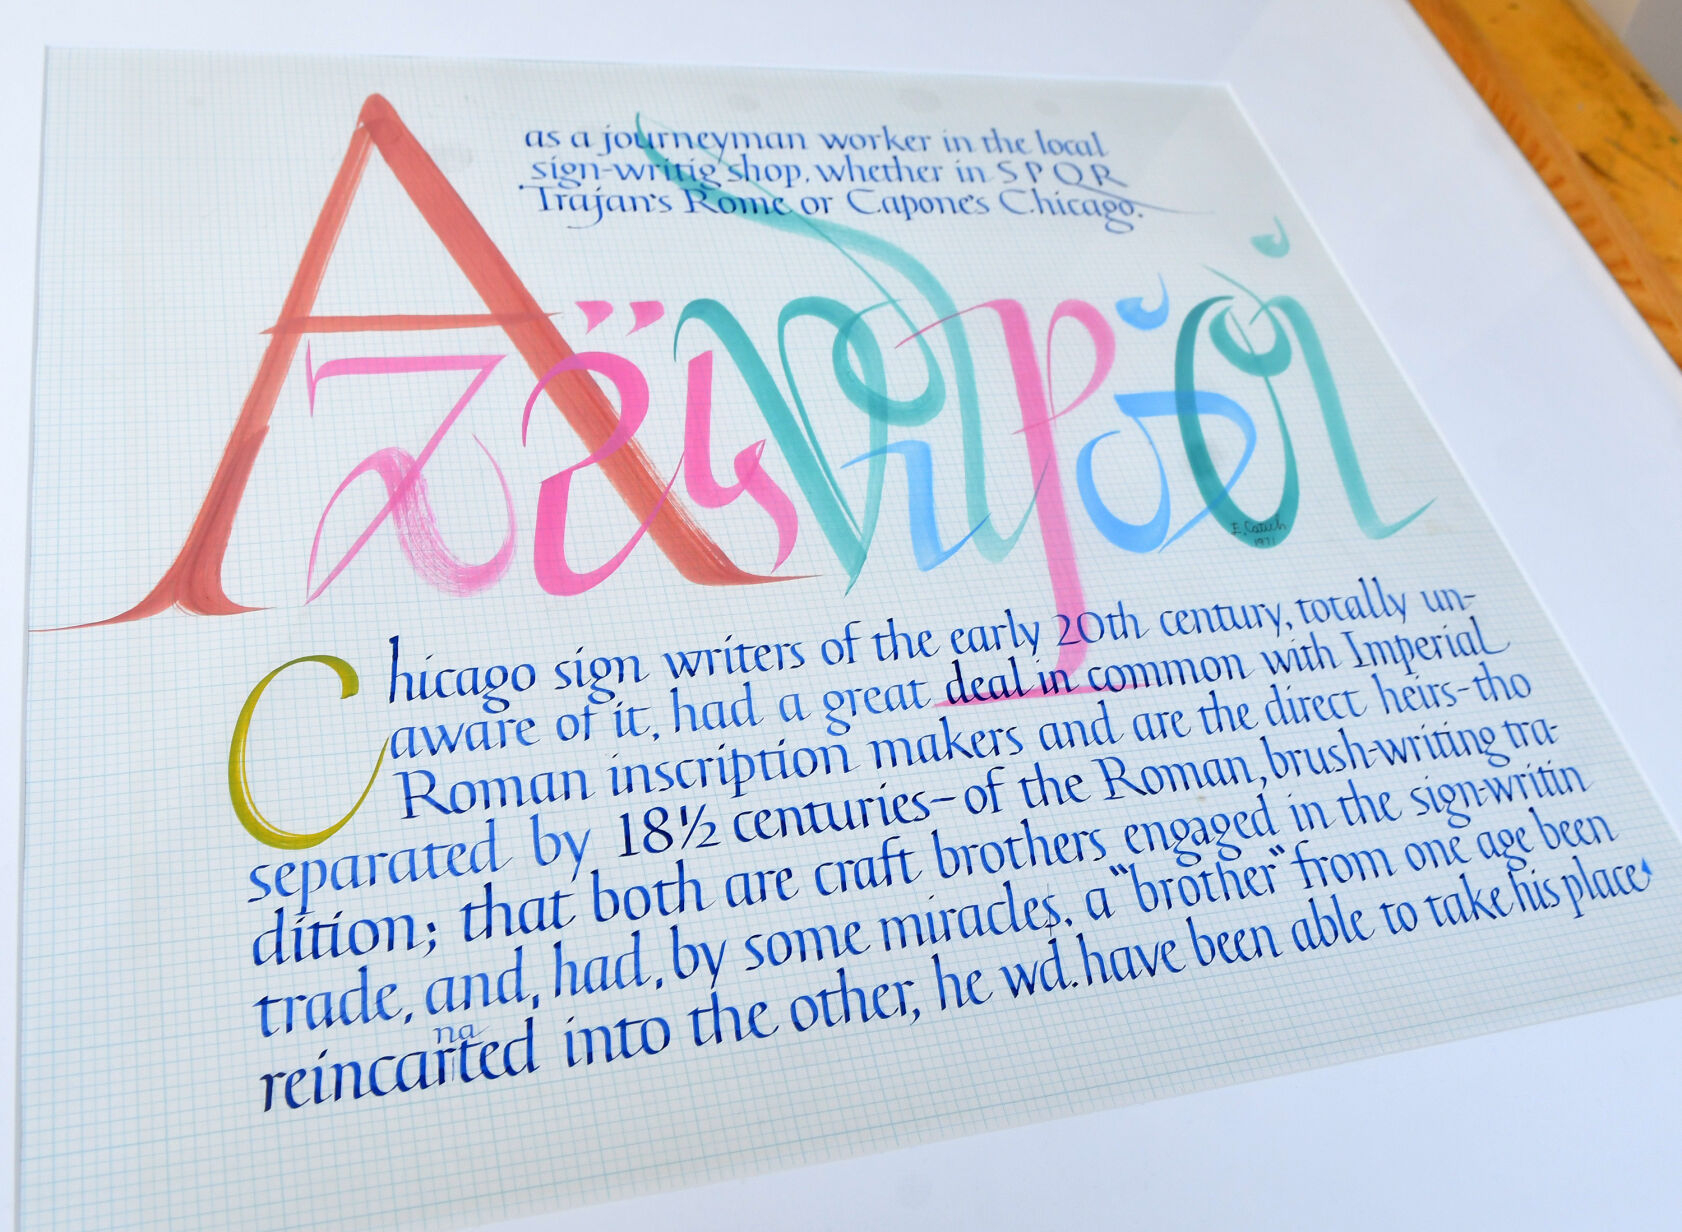 as a journeyman worker in the local
sign-writig shop, whether in S P Q R
Trajan's Rome or Capone's Chicago.
A
E. Catich
1971
Chicago sign writers of the early 20th century, totally un-
aware of it, had a great deal in common with Imperial
Roman inscription makers and are the direct heirs-tho
separated by 18½ centuries-of the Roman, brush-writing tra-
dition; that both are craft brothers engaged in the sign-writin
trade, and, had, by some miracles, a "brother" from one age been
na
reincarted into the other, he wd. have been able to take his place